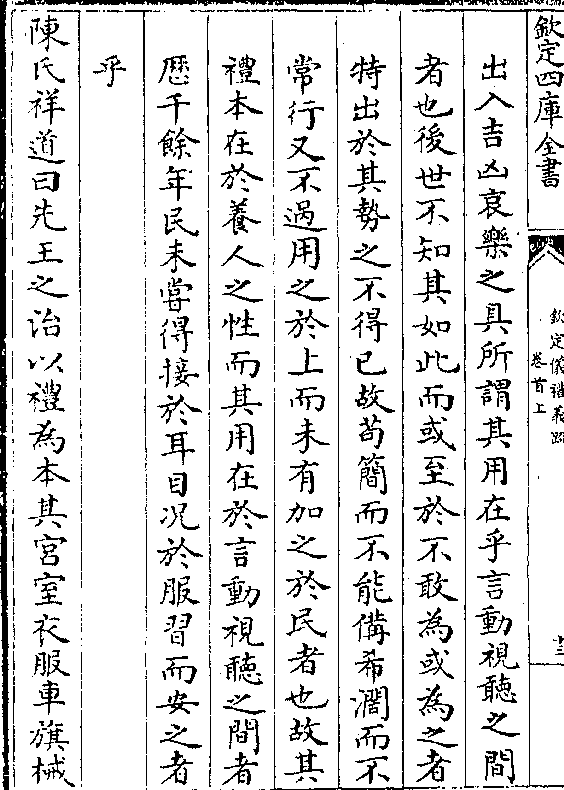 欽定四庫全書
欽定儀禮義疏
卷首上
十三
出入吉凶哀樂之具所謂其用在乎言動視聽之間
者也後世不知其如此而或至於不敢為或為之者
特出於其勢之不得已故苟簡而不能備希濶而不
常行又不過用之於上而未有加之於民者也故其
禮本在於養人之性而其用在於言動視聽之間者
歴千餘年民未嘗得接於耳目况於服習而安之者
乎
陳氏祥道曰先王之治以禮為本其宮室衣服車旗械